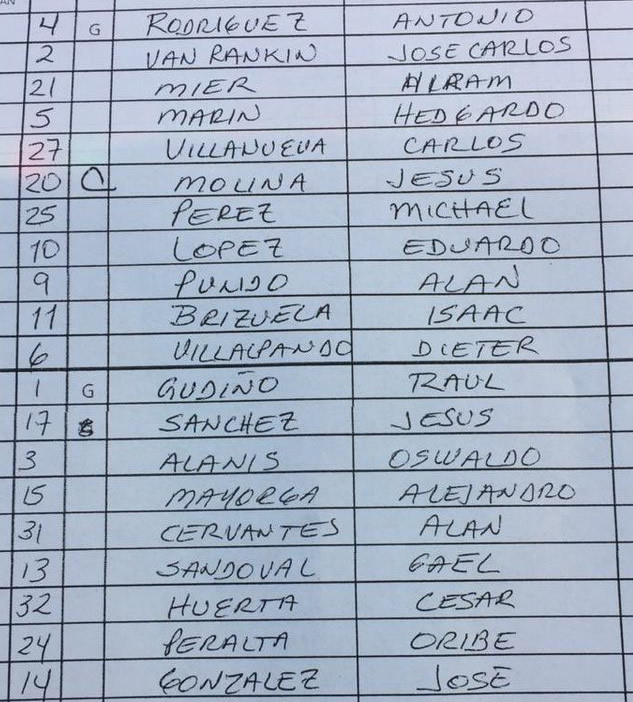 4 G RODRIGUEZ ANTONIO
2 VAN RANKIN JOSE CARLOS
21 MIER HIRAM
5 MARIN HEDGARDO
27 VILLANUEVA CARLOS
20 C MOLINA JESUS
25 PEREZ MICHAEL
10 LOPEZ EDUARDO
9 PULIDO ALAN
11 BRIZUELA ISAAC
6 VILLALPANDO DIETER
1 G GUDIÑO RAUL
17 SANCHEZ JESUS
3 ALANIS OSWALDO
15 MAYORGA ALEJANDRO
31 CERVANTES ALAN
13 SANDOVAL GAEL
32 HUERTA CESAR
24 PERALTA ORIBE
14 GONZALEZ JOSE